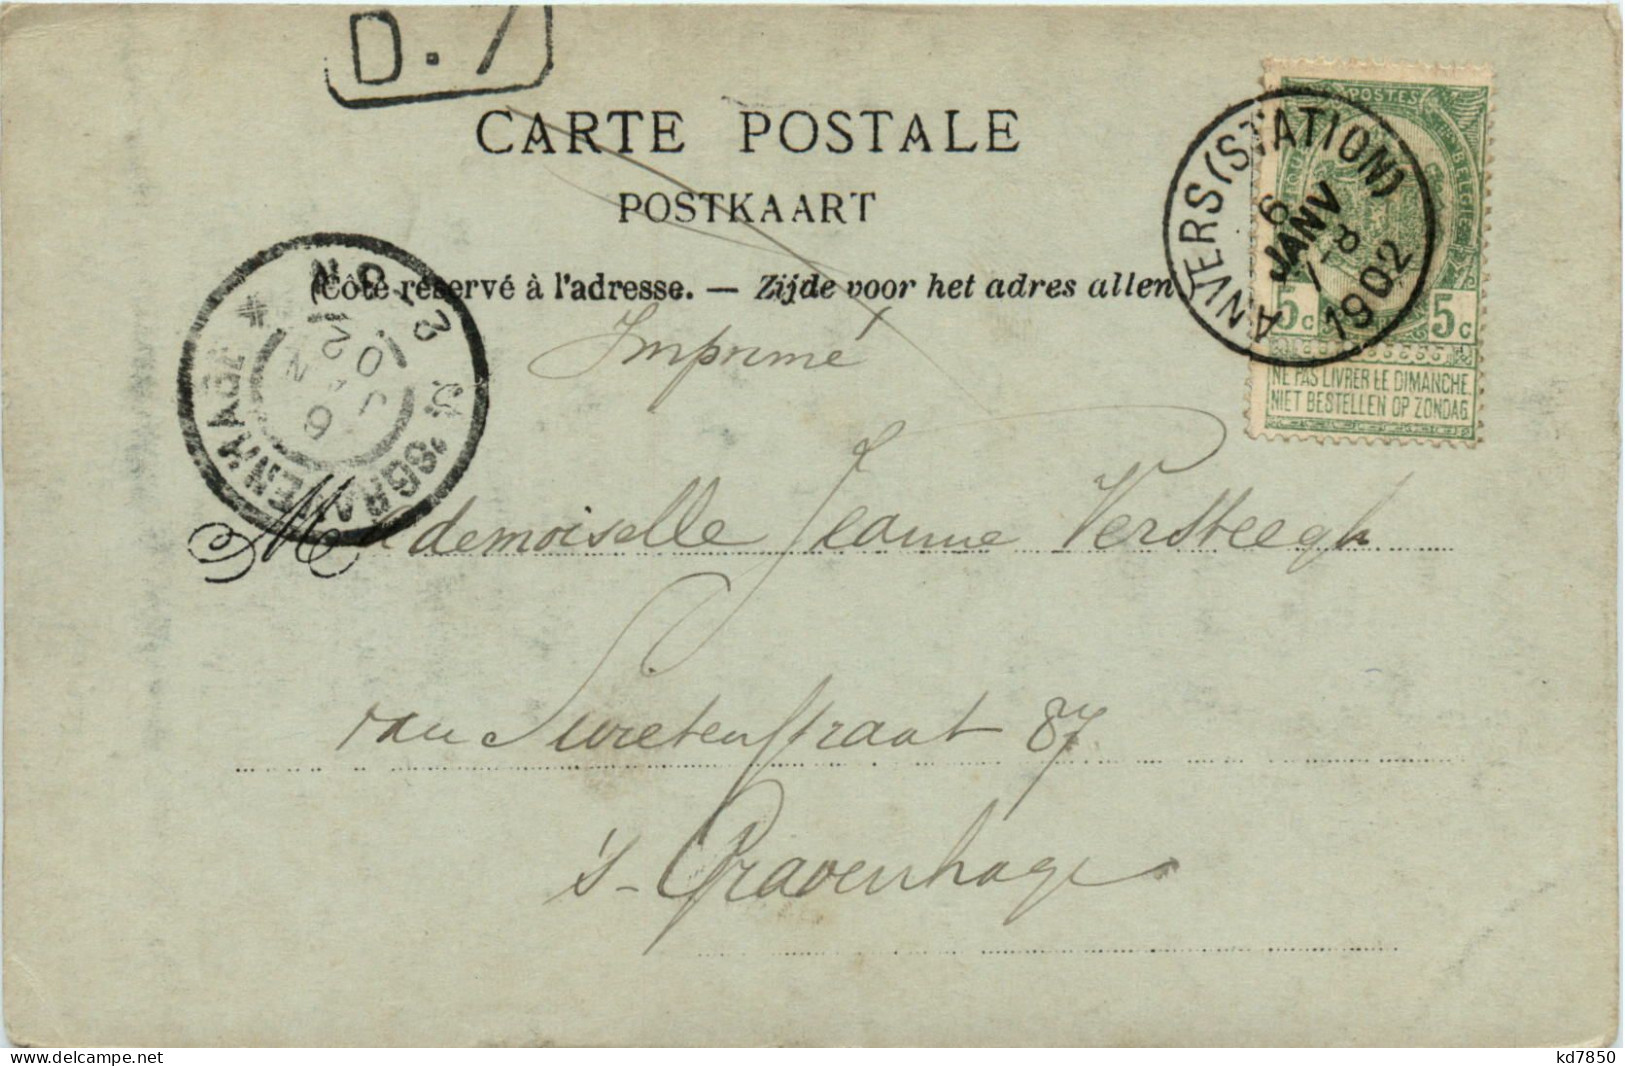 D.7
CARTE POSTALE
POSTKAART
(Côté réservé à l'adresse. — Zijde voor het adres allen
Imprimé
POSTES
ANVERS (STATION)
6
JANV
7-8
1902
5c 5c
NE PAS LIVRER LE DIMANCHE
NIET BESTELLEN OP ZONDAG
'SGRAVENHAGE *
Mademoiselle Jeanne Versteegh
van Swietenstraat 87
's-Gravenhage
delcampe.net
kd7850